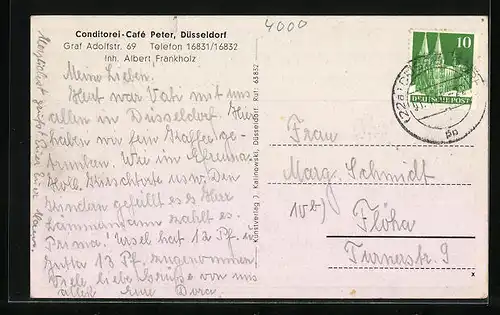 Conditorei-Café Peter, Düsseldorf
Graf Adolfstr. 69 Telefon 16831/16832
Inh. Albert Frankholz
4000
Meine Lieben.
Heut war Vati mit uns
allen in Düsseldorf. Hier
haben wir fein Kaffee ge-
trunken. Wie im
Holl. Kirschtorte usw. Den
Kindern gefällt es. Herr
Lämmermann zahlt es.
Prima! Ursel hat 12 Pf.
Jutta 13 Pf. zugenommen!
Viele liebe Grüße von uns
allen Eure Dora.
Kunstverlag J. Kalinowski, Düsseldorf, Ruf: 65832
10
DEUTSCHE POST
(22a)
Frau
Marg. Schmidt
10b) Flöha
Turnerstr. 9
x